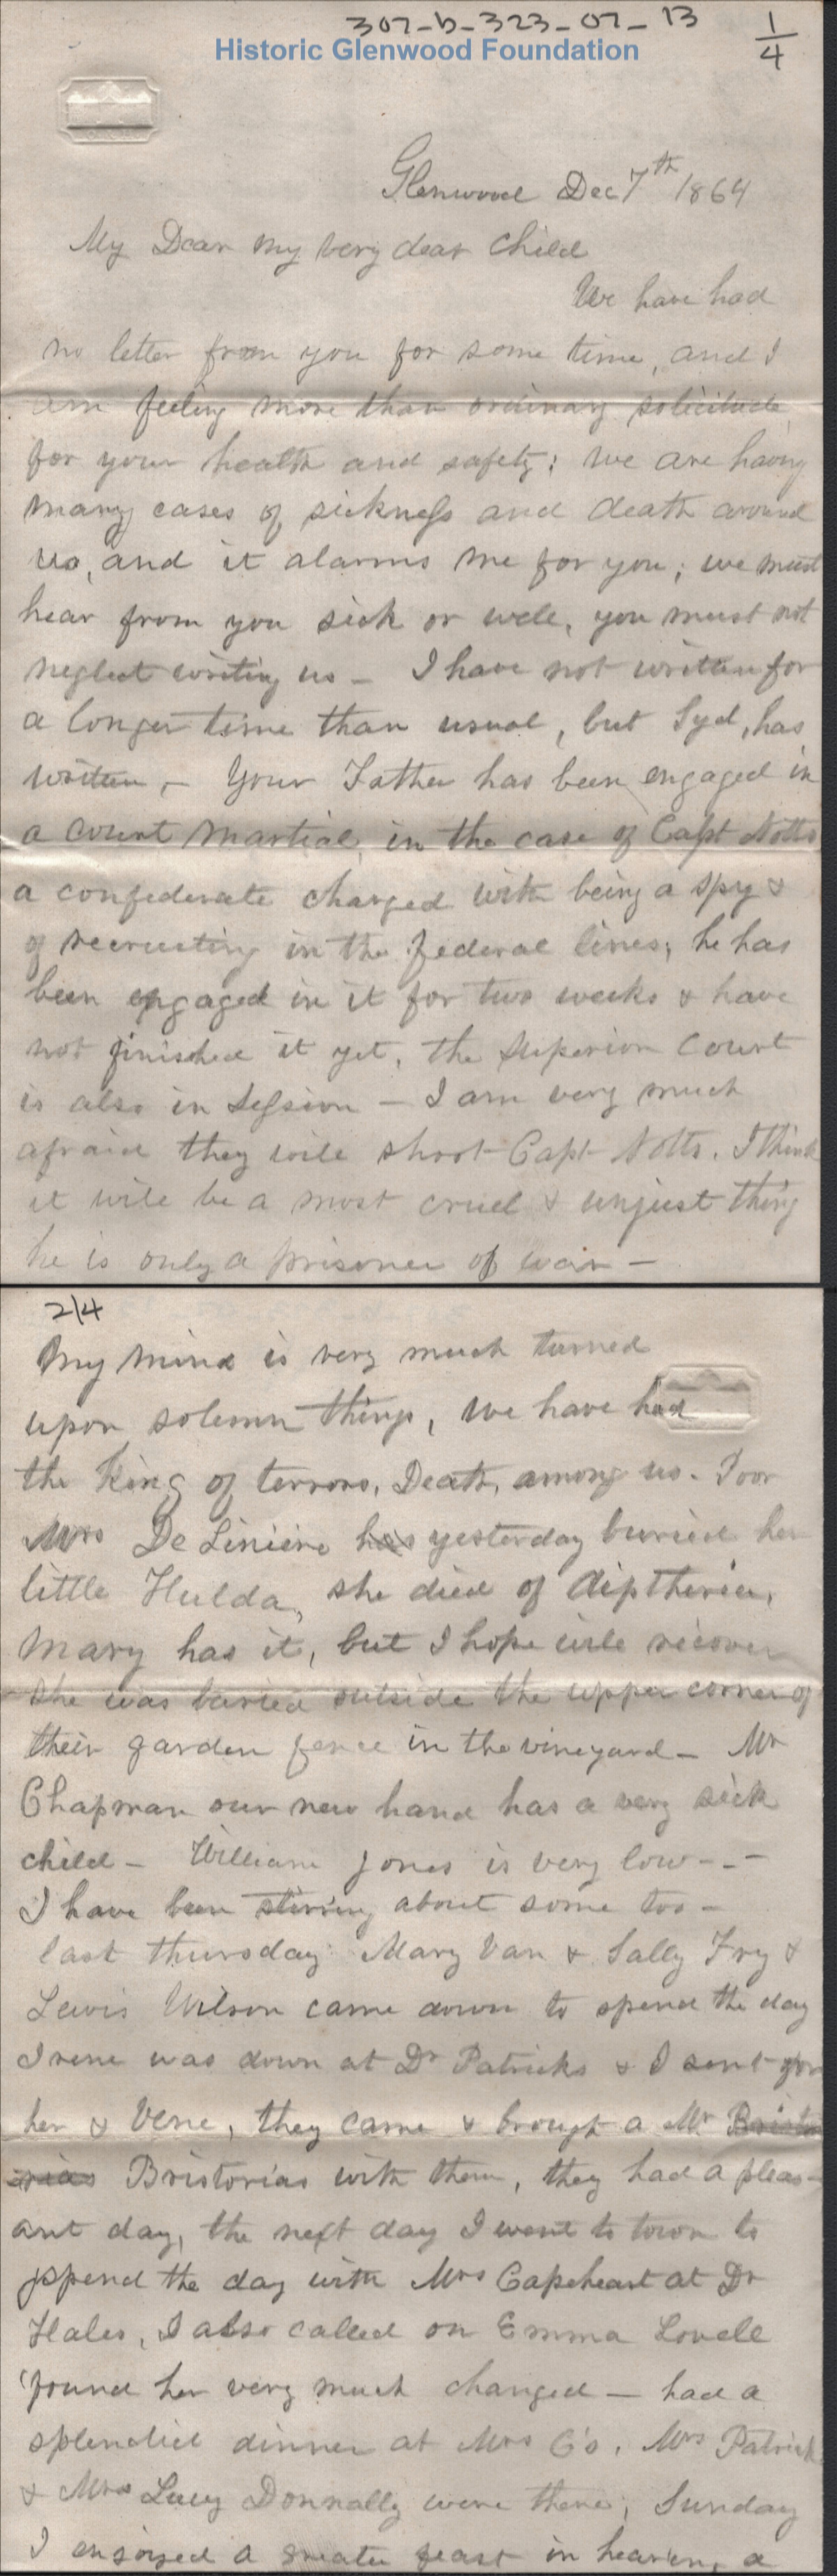 307-b-323-07-13
1/4
Historic Glenwood Foundation
Glenwood Dec 7th 1864
My Dear my very dear Child
We have had
no letter from you for some time, and I
am feeling more than ordinary solicitude
for your health and safety; we are having
many cases of sickness and death around
us, and it alarms me for you; we must
hear from you sick or well, you must not
neglect writing us - I have not written for
a longer time than usual, but Syd, has
written, - Your Father has been engaged in
a court martial, in the case of Capt Notts
a confederate charged with being a spy &
of recruiting in the federal lines; he has
been engaged in it for two weeks & have
not finished it yet, the Superior Court
is also in session - I am very much
afraid they will shoot Capt Notts. I think
it will be a most cruel & unjust thing
he is only a prisoner of war -
2/4
My mind is very much turned
upon solemn things, we have had
the King of terrors, Death, among us. Poor
Mrs De Liniere has yesterday buried her
little Hulda, she died of diptheria,
Mary has it, but I hope will recover
she was buried outside the upper corner of
their garden fence in the vineyard - Mr
Chapman our new hand has a very sick
child - William Jones is very low - - -
I have been stirring about some too -
last thursday Mary Van & Sally Fry &
Lewis Wilson came down to spend the day
Irene was down at Dr Patricks & I sent for
her & Vene, they came & brough a Mr
Bristorias with them, they had a pleas-
ant day, the next day I went to town to
spend the day with Mrs Capeheart at Dr
Hales, I also called on Emma Lovell
found her very much changed - had a
splendid dinner at Mrs C's, Mrs Patrick
& Mrs Lucy Donnally were there; Sunday
I enjoyed a greater feast in hearing a